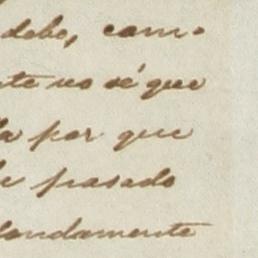 debe, com-
te no sé que
la por que
pasado
fondamente